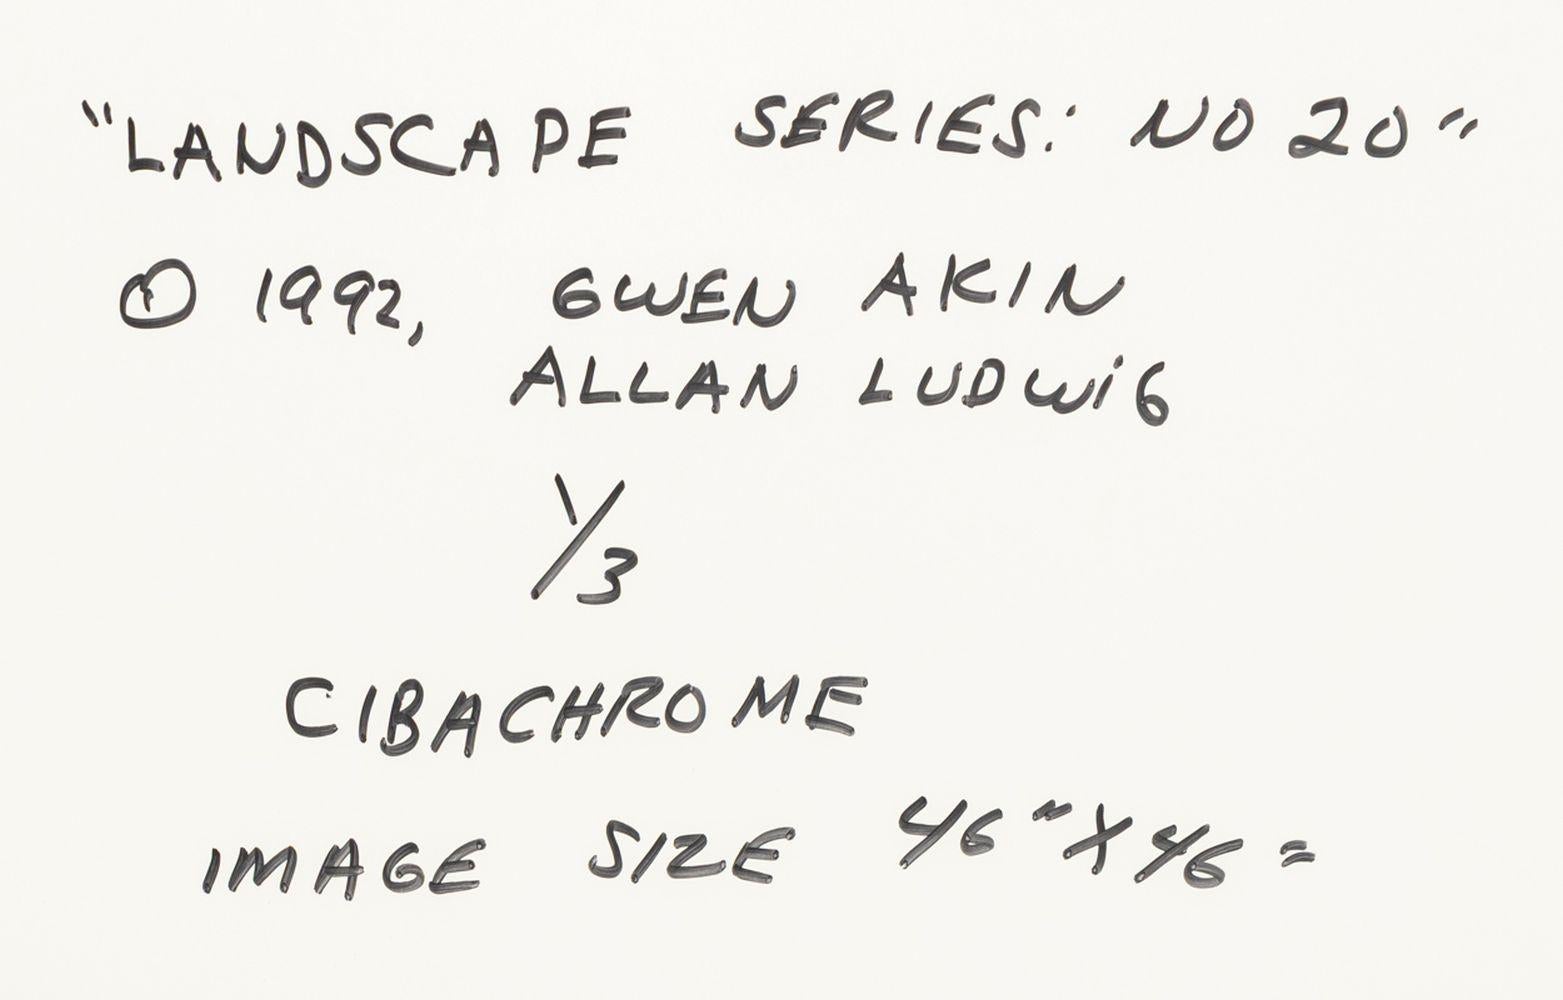 "LANDSCAPE SERIES: NO 20"
© 1992, GWEN AKIN
ALLAN LUDWIG
1/3
CIBACHROME
IMAGE SIZE 46" X 46"